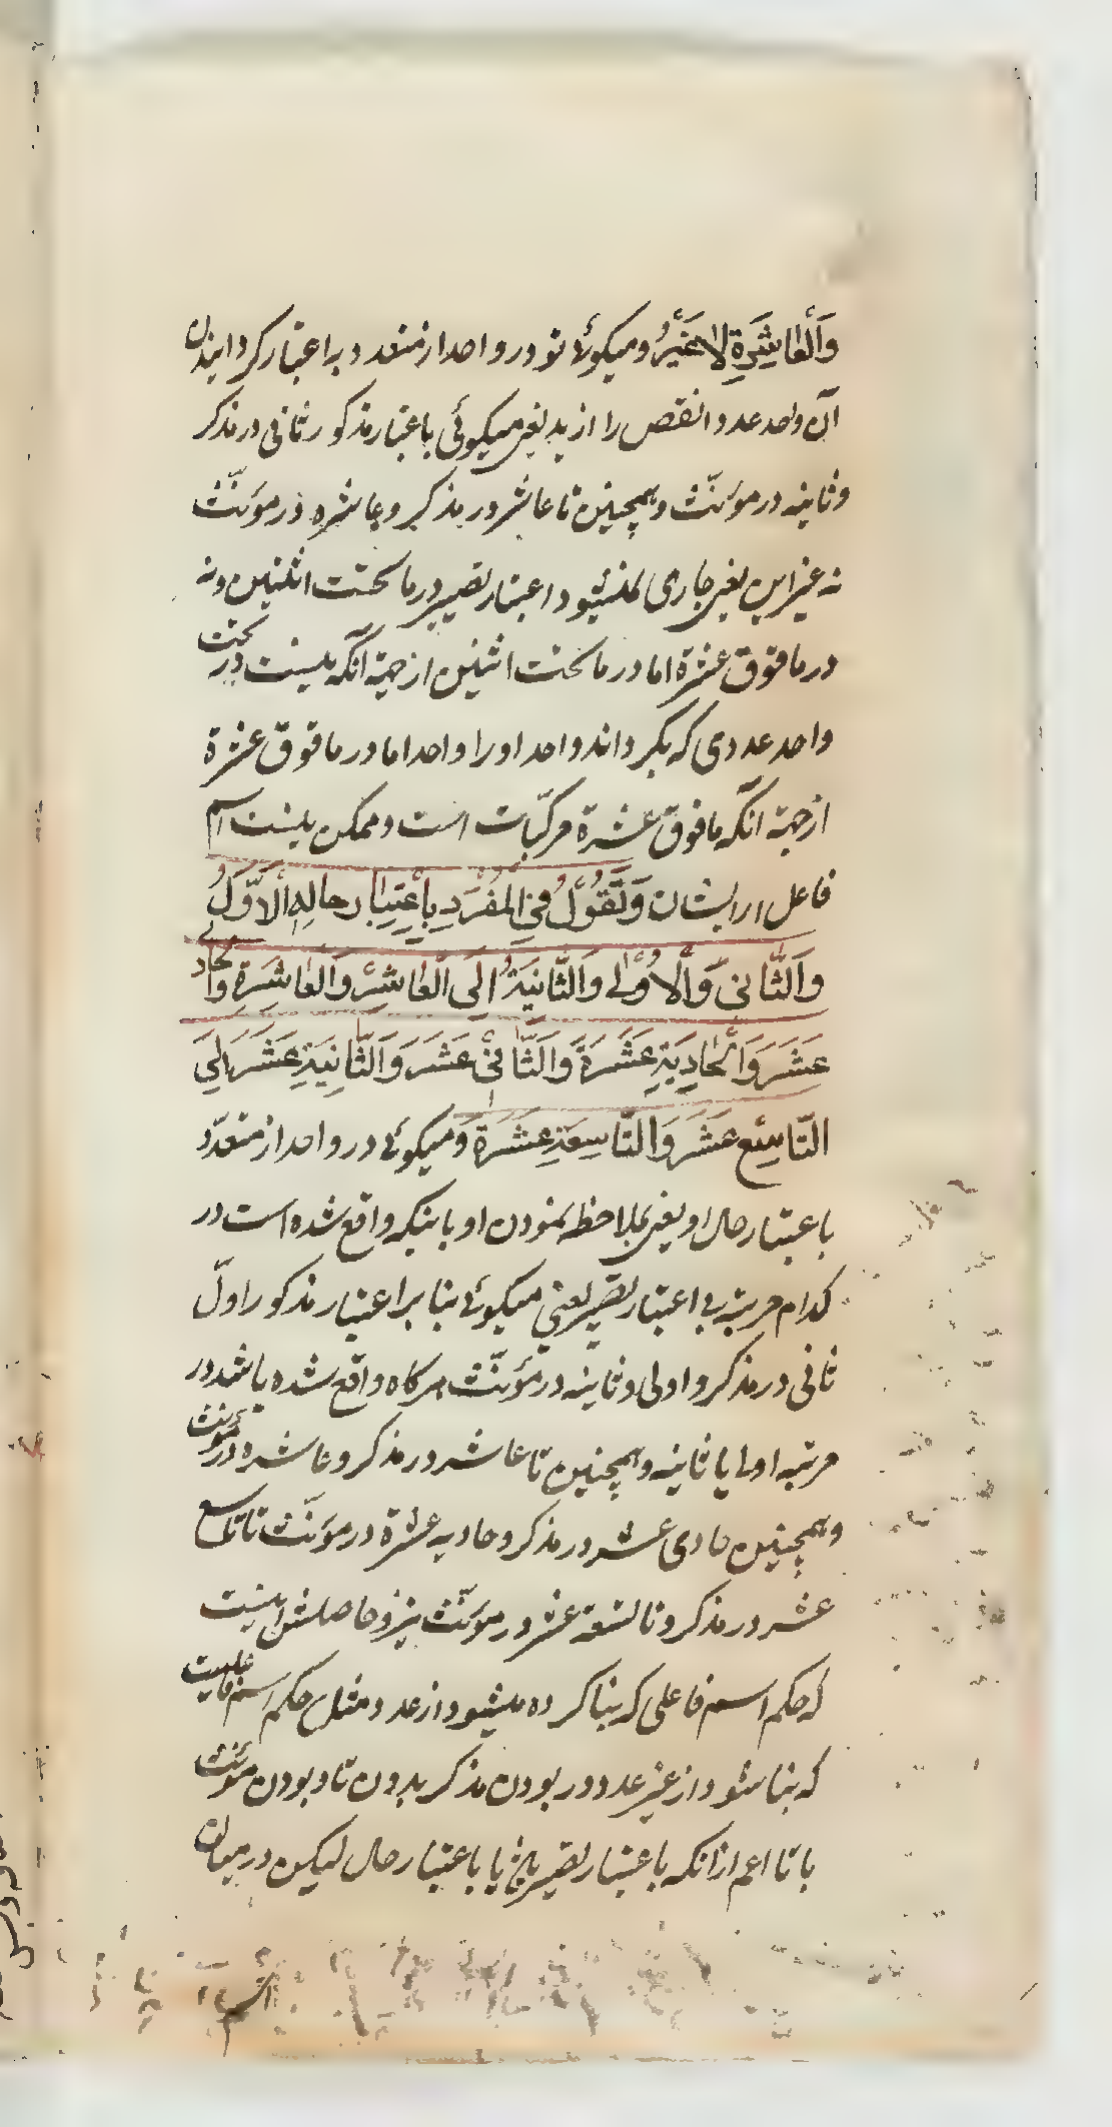 وَالْعاشِرَةِ لاغَيْرُ وميكوئى تو در واحد از متعدد به اعتبار كردانيدن
آن واحد عدد انقص را ازيد يعنى ميكوئى باعتبار مذكور ثانى در مذكر
وثانيه در مونّث وهمچنين تا عاشر در مذكر وعاشره در مونّث
نه غير اين يعنى جارى نميشود اعتبار تصيير در ما تحت اثنين ونه
در ما فوق عشرة اما در ما تحت اثنين از جهة آنكه نيست در تحت
واحد عددى كه بكرداند واحد اورا واحد اما در ما فوق عشرة
از جهة آنكه ما فوق عشرة مركّبات است وممكن نيست اسم
فاعل از ايشان وَتَقُوْلُ فِي الْمُفْرَدِ بِاِعْتِبارِ حالِهِ الْاَوَّلُ
وَالثّانى وَالْاُوْلى وَالثّانِيَةُ اِلَى الْعاشِرْ وَالْعاشِرَةِ والحادى
عَشَرَ وَالْحادِيَةِ عَشَرَةَ وَالثّانِىْ عَشَرَ وَالثّانِيَةِ عَشَرَ اِلَى
التّاسِع عَشَرَ وَالتّاسِعَةِ عَشَرَةَ وَميكوئى در واحد از متعدّد
باعتبار حال او يعنى بملاحظه نمودن او باينكه واقع شده است در
كدام مرتبه بى اعتبار تصيير يعنى ميكوئى بنا بر اعتبار مذكور اوّل
ثانى در مذكر و اولى وثانيه در مؤنّث هركاه واقع شده باشد در
مرتبه اولى يا ثانيه وهمچنين تا عاشر در مذكر وعاشره در مؤنث
وهمچنين حادى عشر در مذكر وحاديه عشرة در مونّث تا تاسع
عشر در مذكر وتاسعة عشر در مونّث نيز وحاصلش اينست
كه حكم اسم فاعلى كه بنا كرده ميشود از عدد مثل حكم اسم فاعليست
كه بنا شود از غير عدد در بودن مذكر بدون تا وبودن مونّث
با تا اعم از آنكه باعتبار تصيير باشد يا باعتبار حال ليكن در ميان